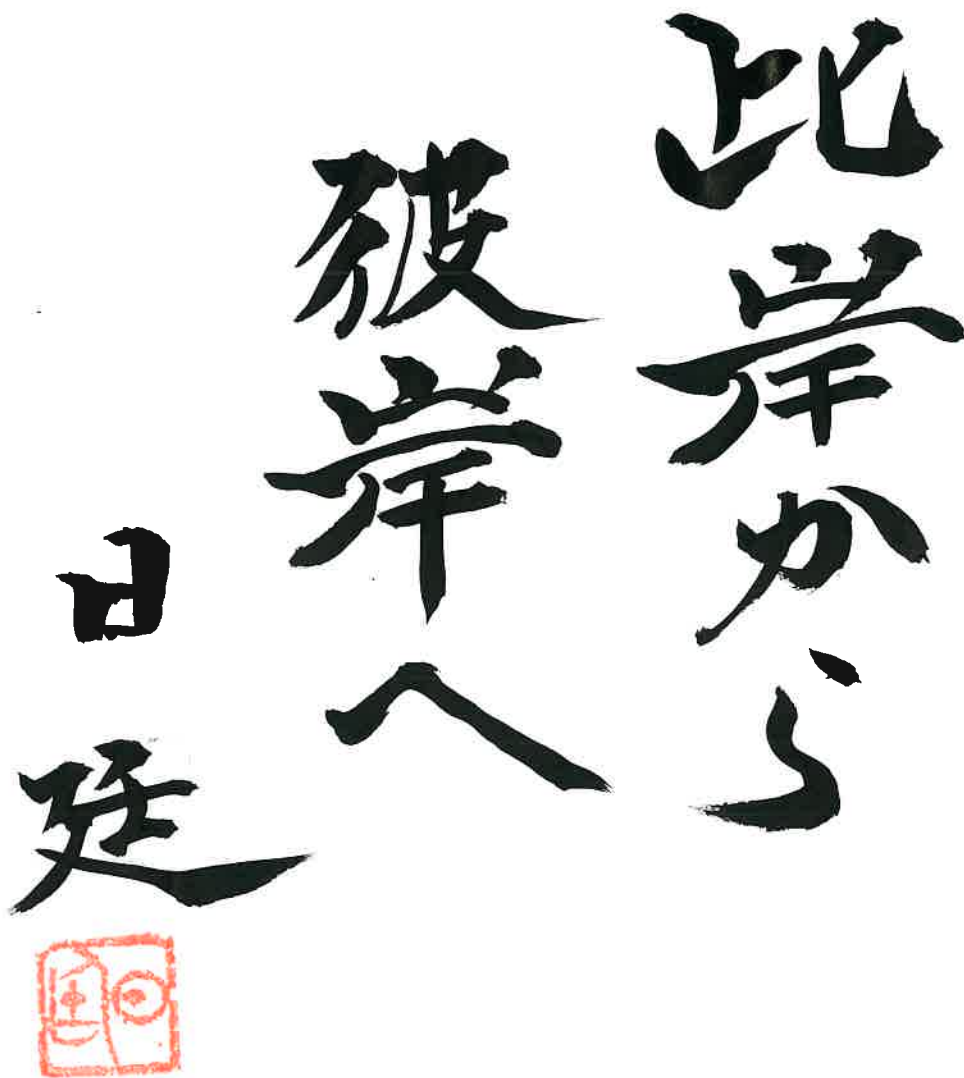 此岸から
彼岸へ
日廷